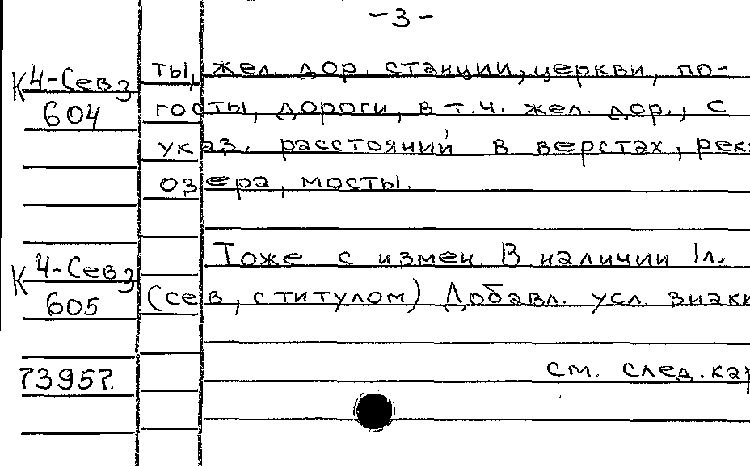 -3-
К 4-Сев з
604
ты, жел. дор. станции, церкви, по-
госты, дороги, в т.ч. жел. дор., с
указ. расстояний в верстах, реки
озера, мосты.
К 4-Сев з
605
Тоже с измен. В наличии 1л.
(сев, с титулом) Добавл. усл. знаки
73957.
см. след. кар